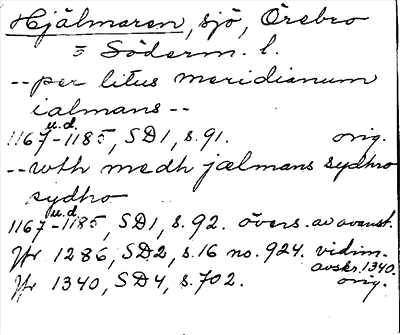 Hjälmaren, sjö, Örebro
o Söderm. l.
-- per litus meridianum
ialmans --
u.d.
1167-1185, SD1, s.91. orig.
-- wth medh jælmans sydhro
sydho
u.d.
1167-1185, SD1, s.92. övers. av ovanst.
Yr 1286, SD2, s.16 no. 924. vidim.
avskr. 1340.
Yr 1340, SD4, s.702. orig.